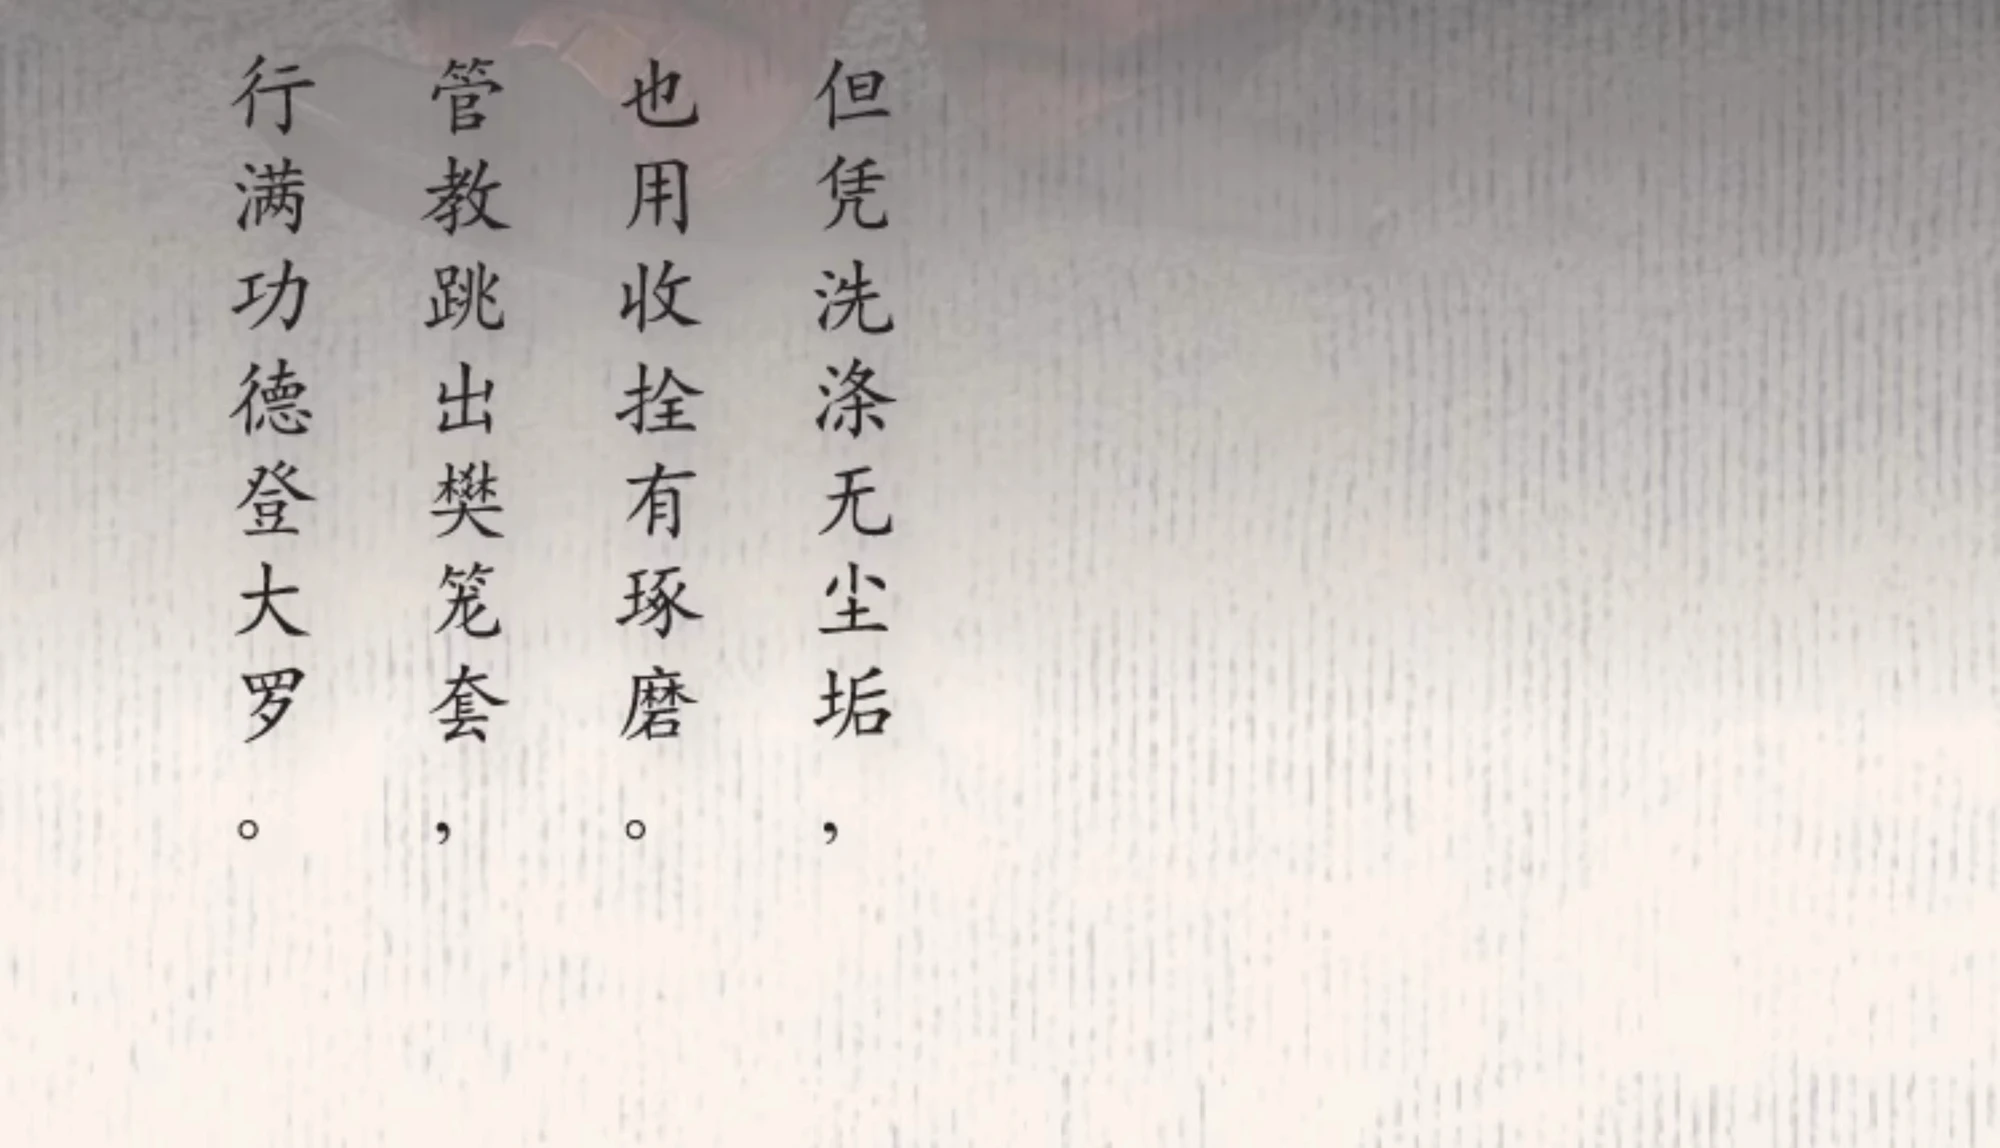 但凭洗涤无尘垢，
也用收拴有琢磨。
管教跳出樊笼套，
行满功德登大罗。